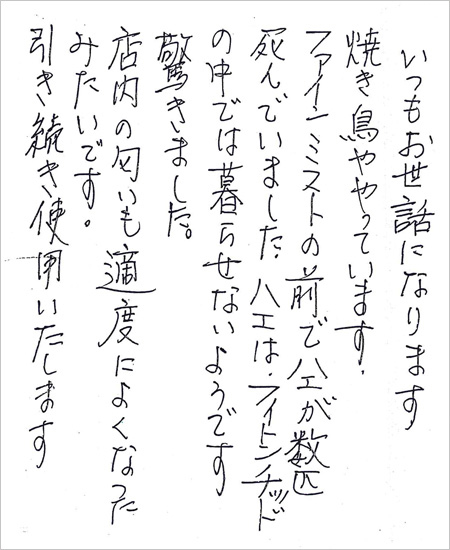 いつもお世話になります
焼き鳥ややっています.
ファインミストの前でハエが数匹
死んでいました.ハエは.フィトンチッド
の中では暮らせないようです
驚きました。
店内の匂いも適度によくなった
みたいです。
引き続き使用いたします